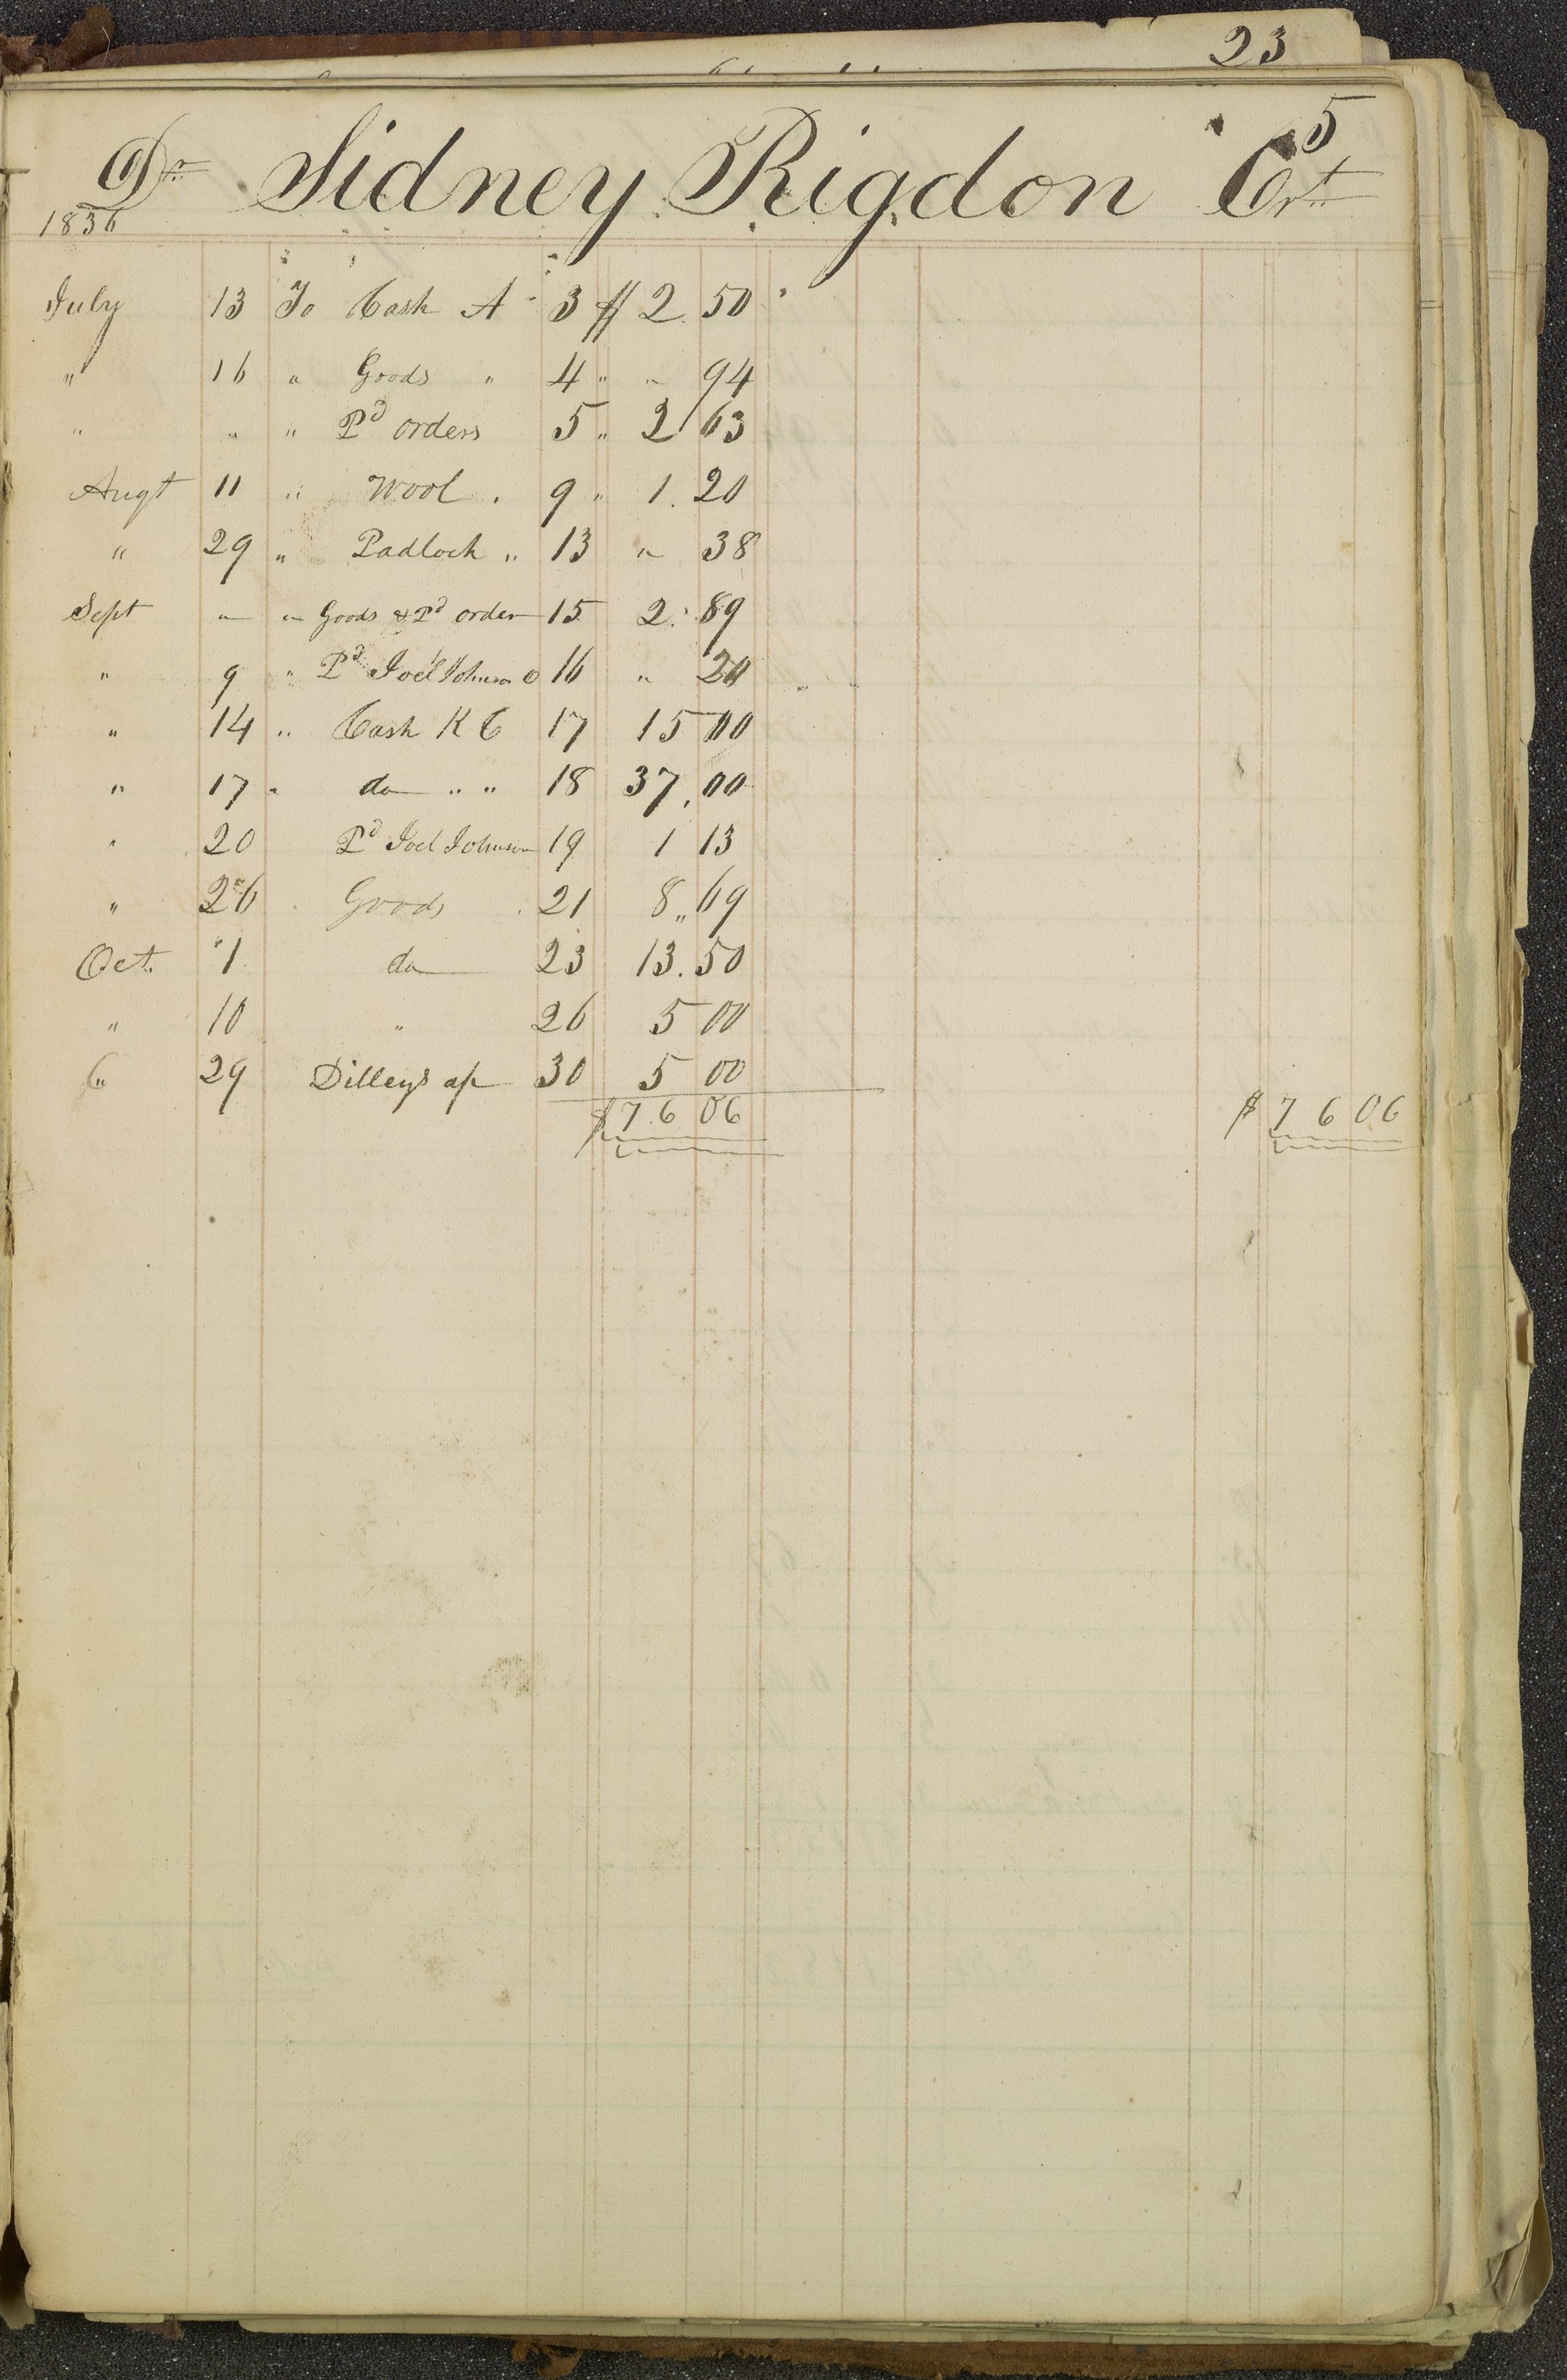 23
5
Dr. Sidney Rigdon Crt.
1836
July 13 To Cash A 3 $ 2 50
" 16 " Goods " 4 " " 94
" " " Pd orders 5 " 2 63
Augt 11 " Wool . 9 " 1. 20
" 29 " Padlock " 13 " 38
Sept " " Goods & Pd order 15 2. 89
" 9 " Pd Joel Johnson 16 " 20
" 14 " Cash K C 17 15 00
" 17 " do " " 18 37. 00
" 20 Pd Joel Johnson 19 1 13
" 26 Goods 21 8 " 69
Oct. 1 do 23 13. 50
" 10 " 26 5 00
" 29 Dilleys 30 5 00
$ 76 06 $ 76 06